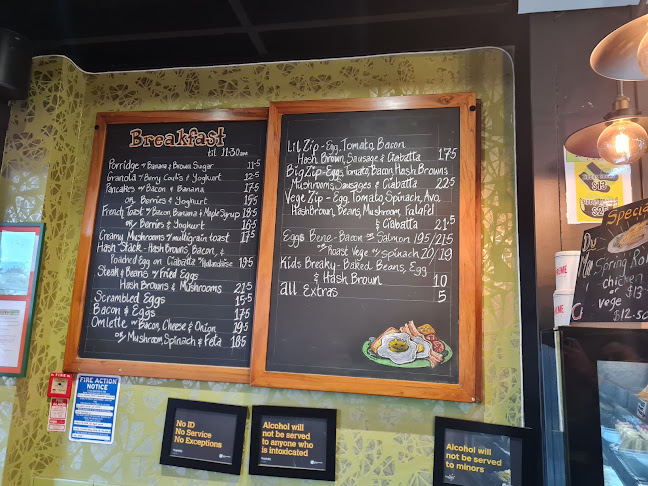 Breakfast
til 11:30am
Porridge w Banana & Brown Sugar 11.5
Granola w Berry Coulis & Yoghurt 12.5
Pancakes w Bacon & Banana 17.5
or Berries & Yoghurt 15.5
French Toast w Bacon, Banana & Maple Syrup 18.5
or Berries & Yoghurt 16.5
Creamy Mushrooms w multigrain toast 17.5
Hash Stack - Hash Browns, Bacon, &
Poached Egg on Ciabatta w Hollandaise 19.5
Steak & Beans w Fried Eggs
Hash Browns & Mushrooms 21.5
Scrambled Eggs 15.5
Bacon & Eggs 17.5
Omlette w Bacon, Cheese & Onion 19.5
or Mushroom, Spinach & Feta 18.5
Lil Zip - Egg, Tomato, Bacon
Hash Brown, Sausage & Ciabatta 17.5
Big Zip - Eggs, Tomato, Bacon, Hash Browns
Mushrooms, Sausages & Ciabatta 22.5
Vege Zip - Egg, Tomato, Spinach, Avo,
Hash Brown, Beans, Mushroom, Falafel
& Ciabatta 21.5
Eggs Bene - Bacon or Salmon 19.5/21.5
or Roast Vege or Spinach 20/19
Kids Breaky - Baked Beans, Egg
& Hash Brown 10
all Extras 5
FIRE
FIRE ACTION
NOTICE
No ID
No Service
No Exceptions
Alcohol will
not be served
to anyone who
is intoxicated
Alcohol will
not be served
to minors
$13
$25
Special
Spring Ro
chicken
or $13
vege
$12.50